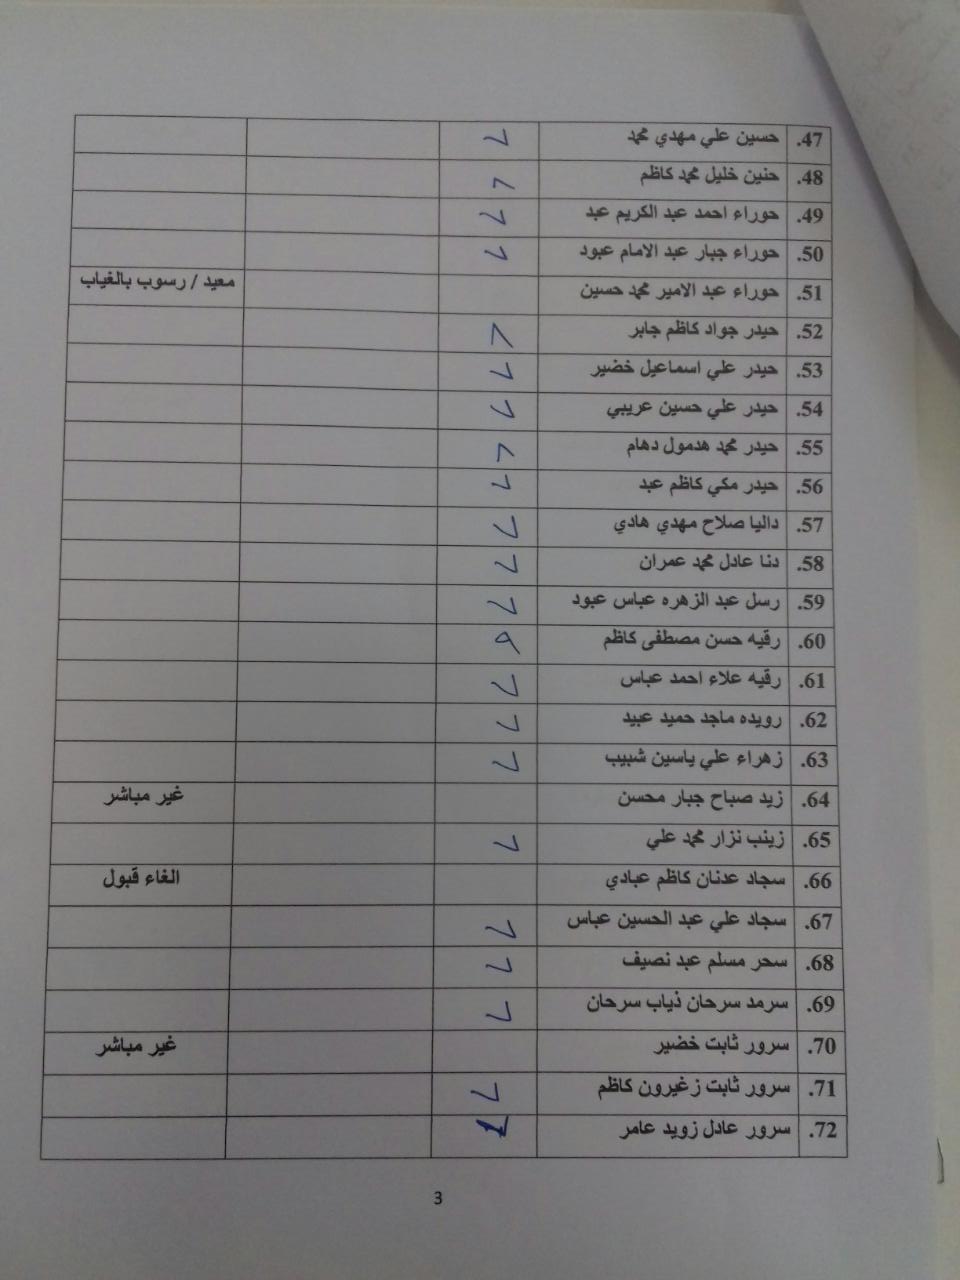 47. حسين علي مهدي محمد 7
48. حنين خليل محمد كاظم 7
49. حوراء احمد عبد الكريم عبد 7
50. حوراء جبار عبد الامام عبود 7
51. حوراء عبد الامير محمد حسين معيد / رسوب بالغياب
52. حيدر جواد كاظم جابر 7
53. حيدر علي اسماعيل خضير 7
54. حيدر علي حسين عريبي 7
55. حيدر محمد هدمول دهام 7
56. حيدر مكي كاظم عبد 7
57. داليا صلاح مهدي هادي 7
58. دنا عادل محمد عمران 7
59. رسل عبد الزهره عباس عبود 7
60. رقيه حسن مصطفى كاظم 9
61. رقيه علاء احمد عباس 7
62. رويده ماجد حميد عبيد 7
63. زهراء علي ياسين شبيب 7
64. زيد صباح جبار محسن غير مباشر
65. زينب نزار محمد علي 7
66. سجاد عدنان كاظم عبادي الغاء قبول
67. سجاد علي عبد الحسين عباس 7
68. سحر مسلم عبد نصيف 7
69. سرمد سرحان ذياب سرحان 7
70. سرور ثابت خضير غير مباشر
71. سرور ثابت زغيرون كاظم 7
72. سرور عادل زويد عامر 7
3